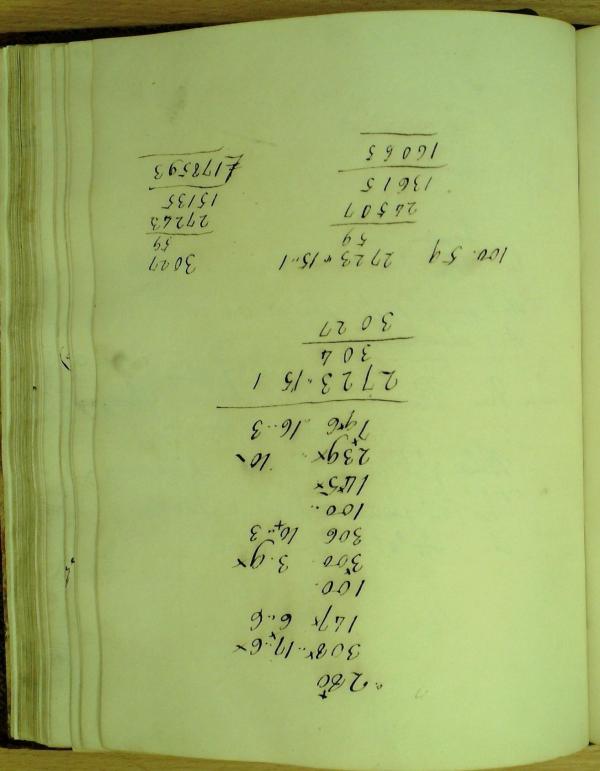 280
308 .. 17 .. 6
147 6 .. 6
100 .
300 3 . 9
306 10 .. 3
100 ..
145
239 10
796 16 .. 3
2723 .. 15 1
304
3027
100 .. 59 2723 .. 15 .. 1 3027
59 59
24507 27243
13615 15135
16065 £178593